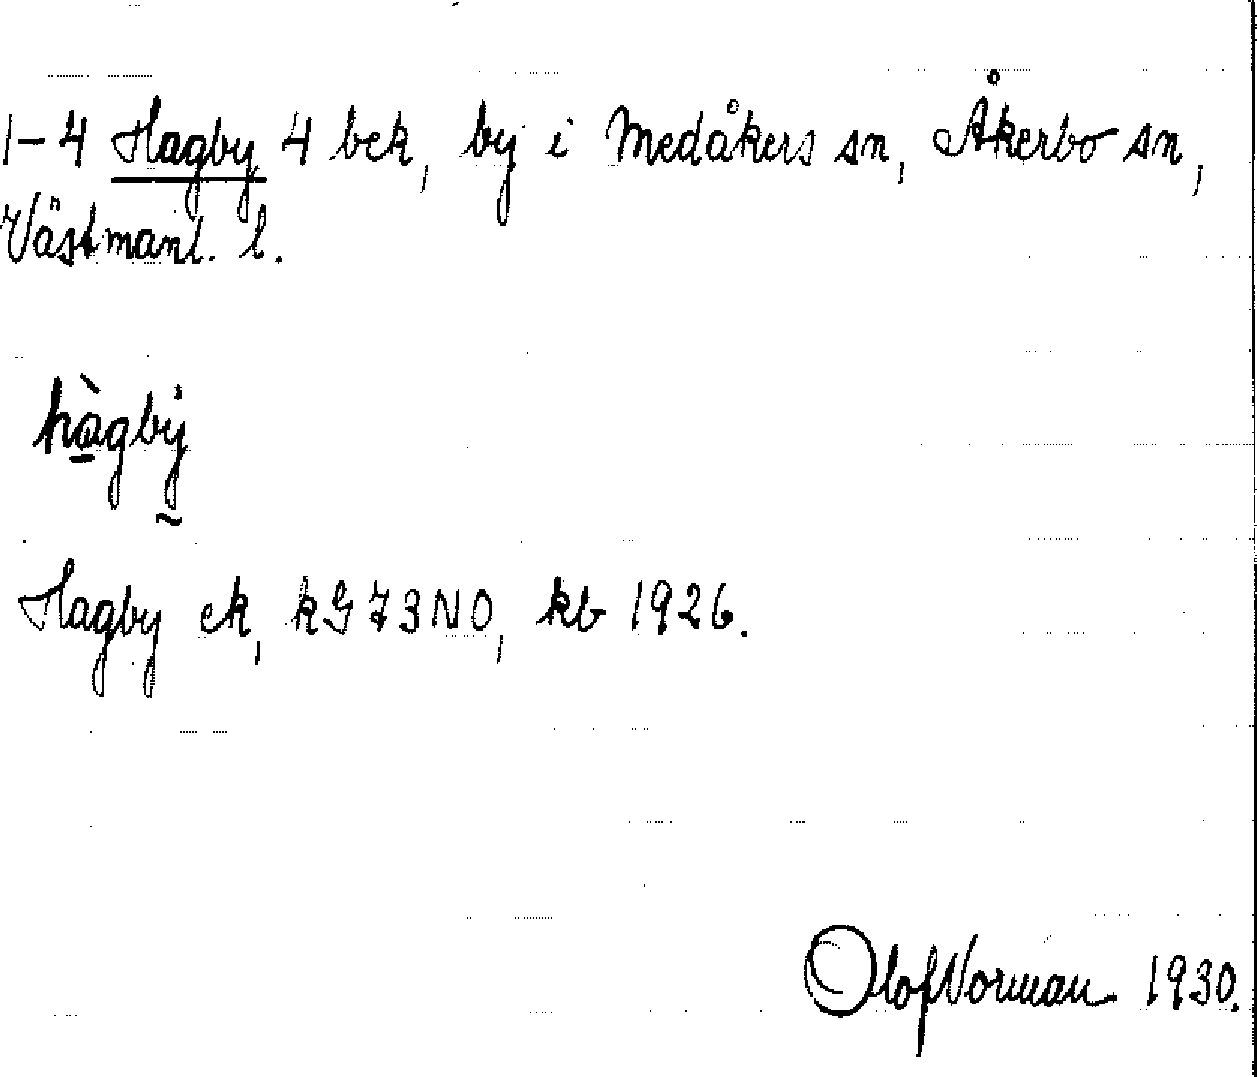 1-4 Hagby 4 bek, by i Medåkers sn, Åkerbo sn,
Västmanl. l.
hàgbẏ
Hagby ek, kG73NO, kb 1926.
Olof Norman 1930.